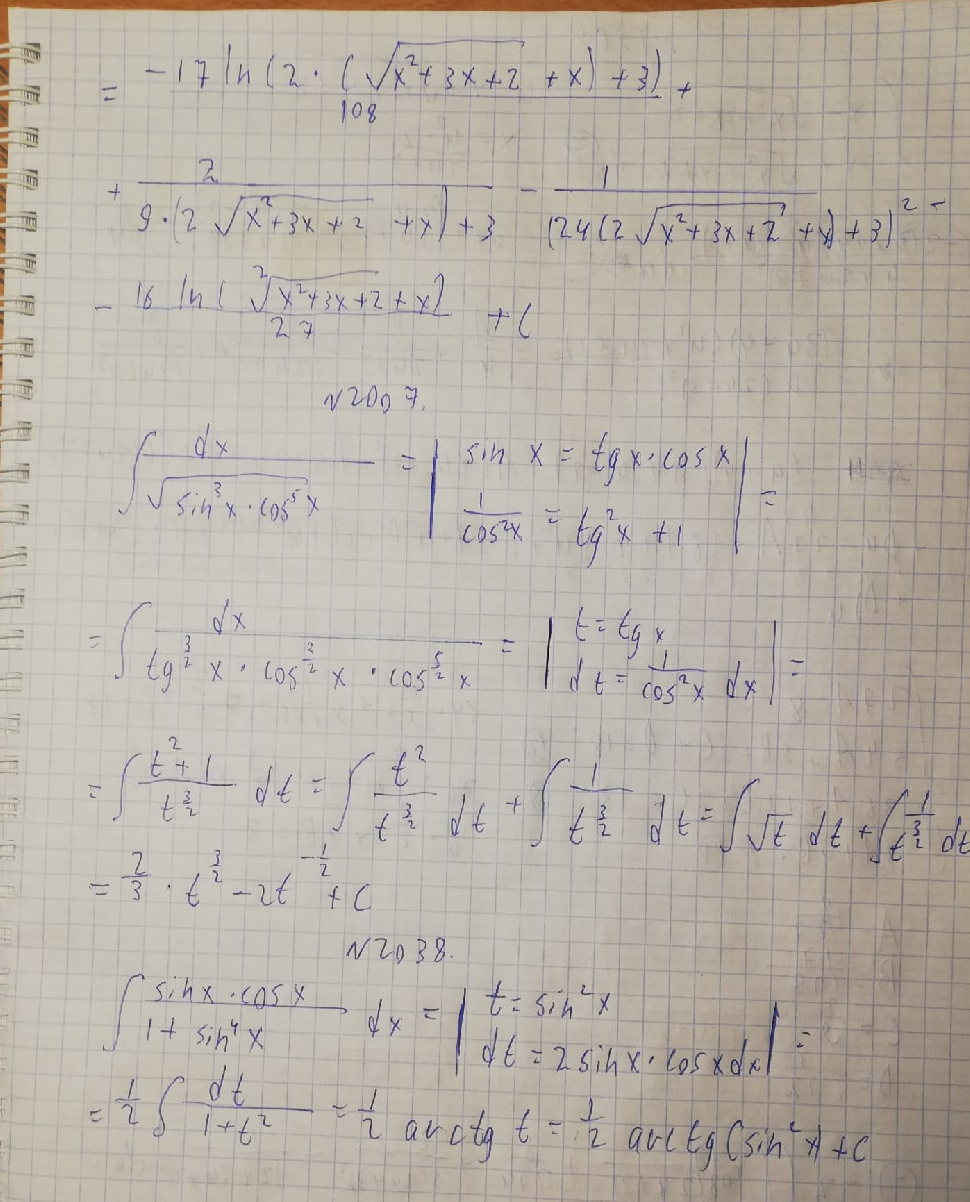 = \frac{-17 ln(2 · (\sqrt{x^2+3x+2} + x) + 3)}{108} +
+ \frac{2}{9·(2\sqrt{x^2+3x+2} + x) + 3} - \frac{1}{(24(2\sqrt{x^2+3x+2} + x) + 3)^2} -
- \frac{16 ln(\sqrt[2]{x^2+3x+2} + x)}{27} + C
N2007.
\int \frac{dx}{\sqrt{sin^3 x · cos^5 x}} = | sin x = tg x · cos x ; \frac{1}{cos^2 x} = tg^2 x + 1 | =
= \int \frac{dx}{tg^{\frac{3}{2}} x · cos^{\frac{3}{2}} x · cos^{\frac{5}{2}} x} = | t = tg x ; dt = \frac{1}{cos^2 x} dx | =
= \int \frac{t^2+1}{t^{\frac{3}{2}}} dt = \int \frac{t^2}{t^{\frac{3}{2}}} dt + \int \frac{1}{t^{\frac{3}{2}}} dt = \int \sqrt{t} dt + \int \frac{1}{t^{\frac{3}{2}}} dt
= \frac{2}{3} · t^{\frac{3}{2}} - 2t^{-\frac{1}{2}} + C
N2038.
\int \frac{sin x · cos x}{1 + sin^4 x} dx = | t = sin^2 x ; dt = 2 sin x · cos x dx | =
= \frac{1}{2} \int \frac{dt}{1+t^2} = \frac{1}{2} arctg t = \frac{1}{2} arctg(sin^2 x) + C